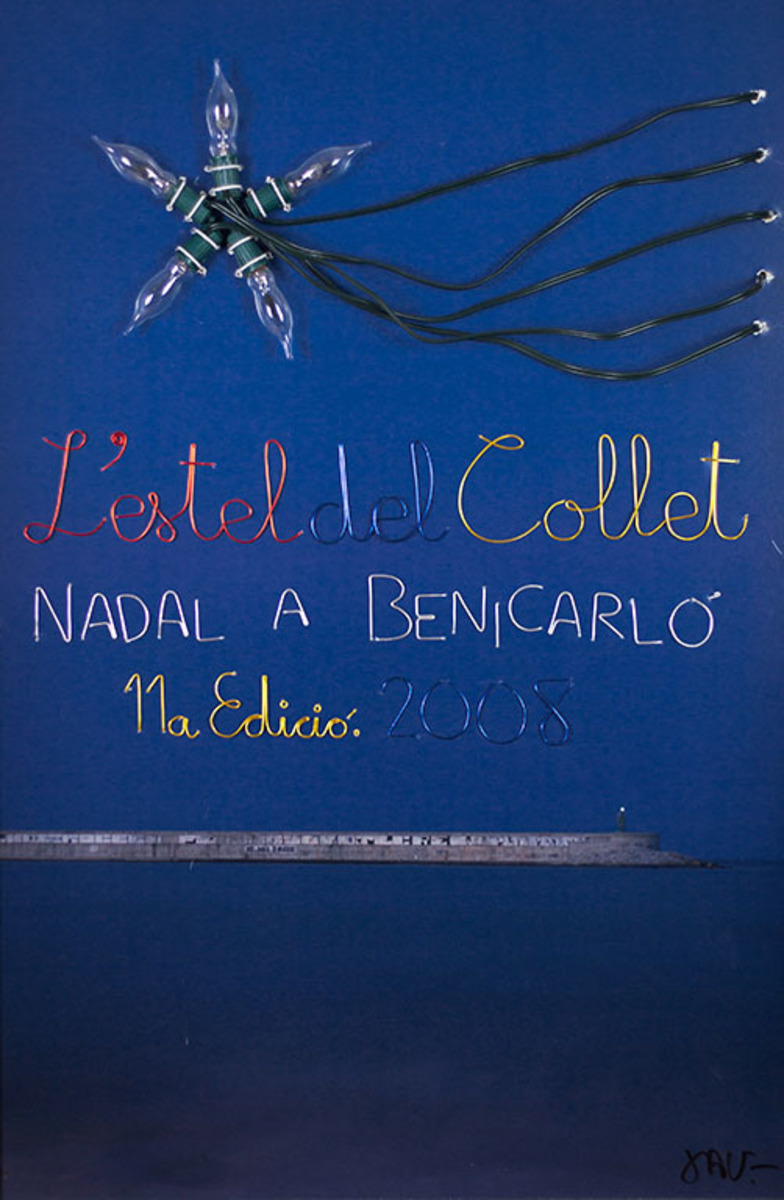 L'estel del Collet
NADAL A BENICARLÓ
11a Edició. 2008